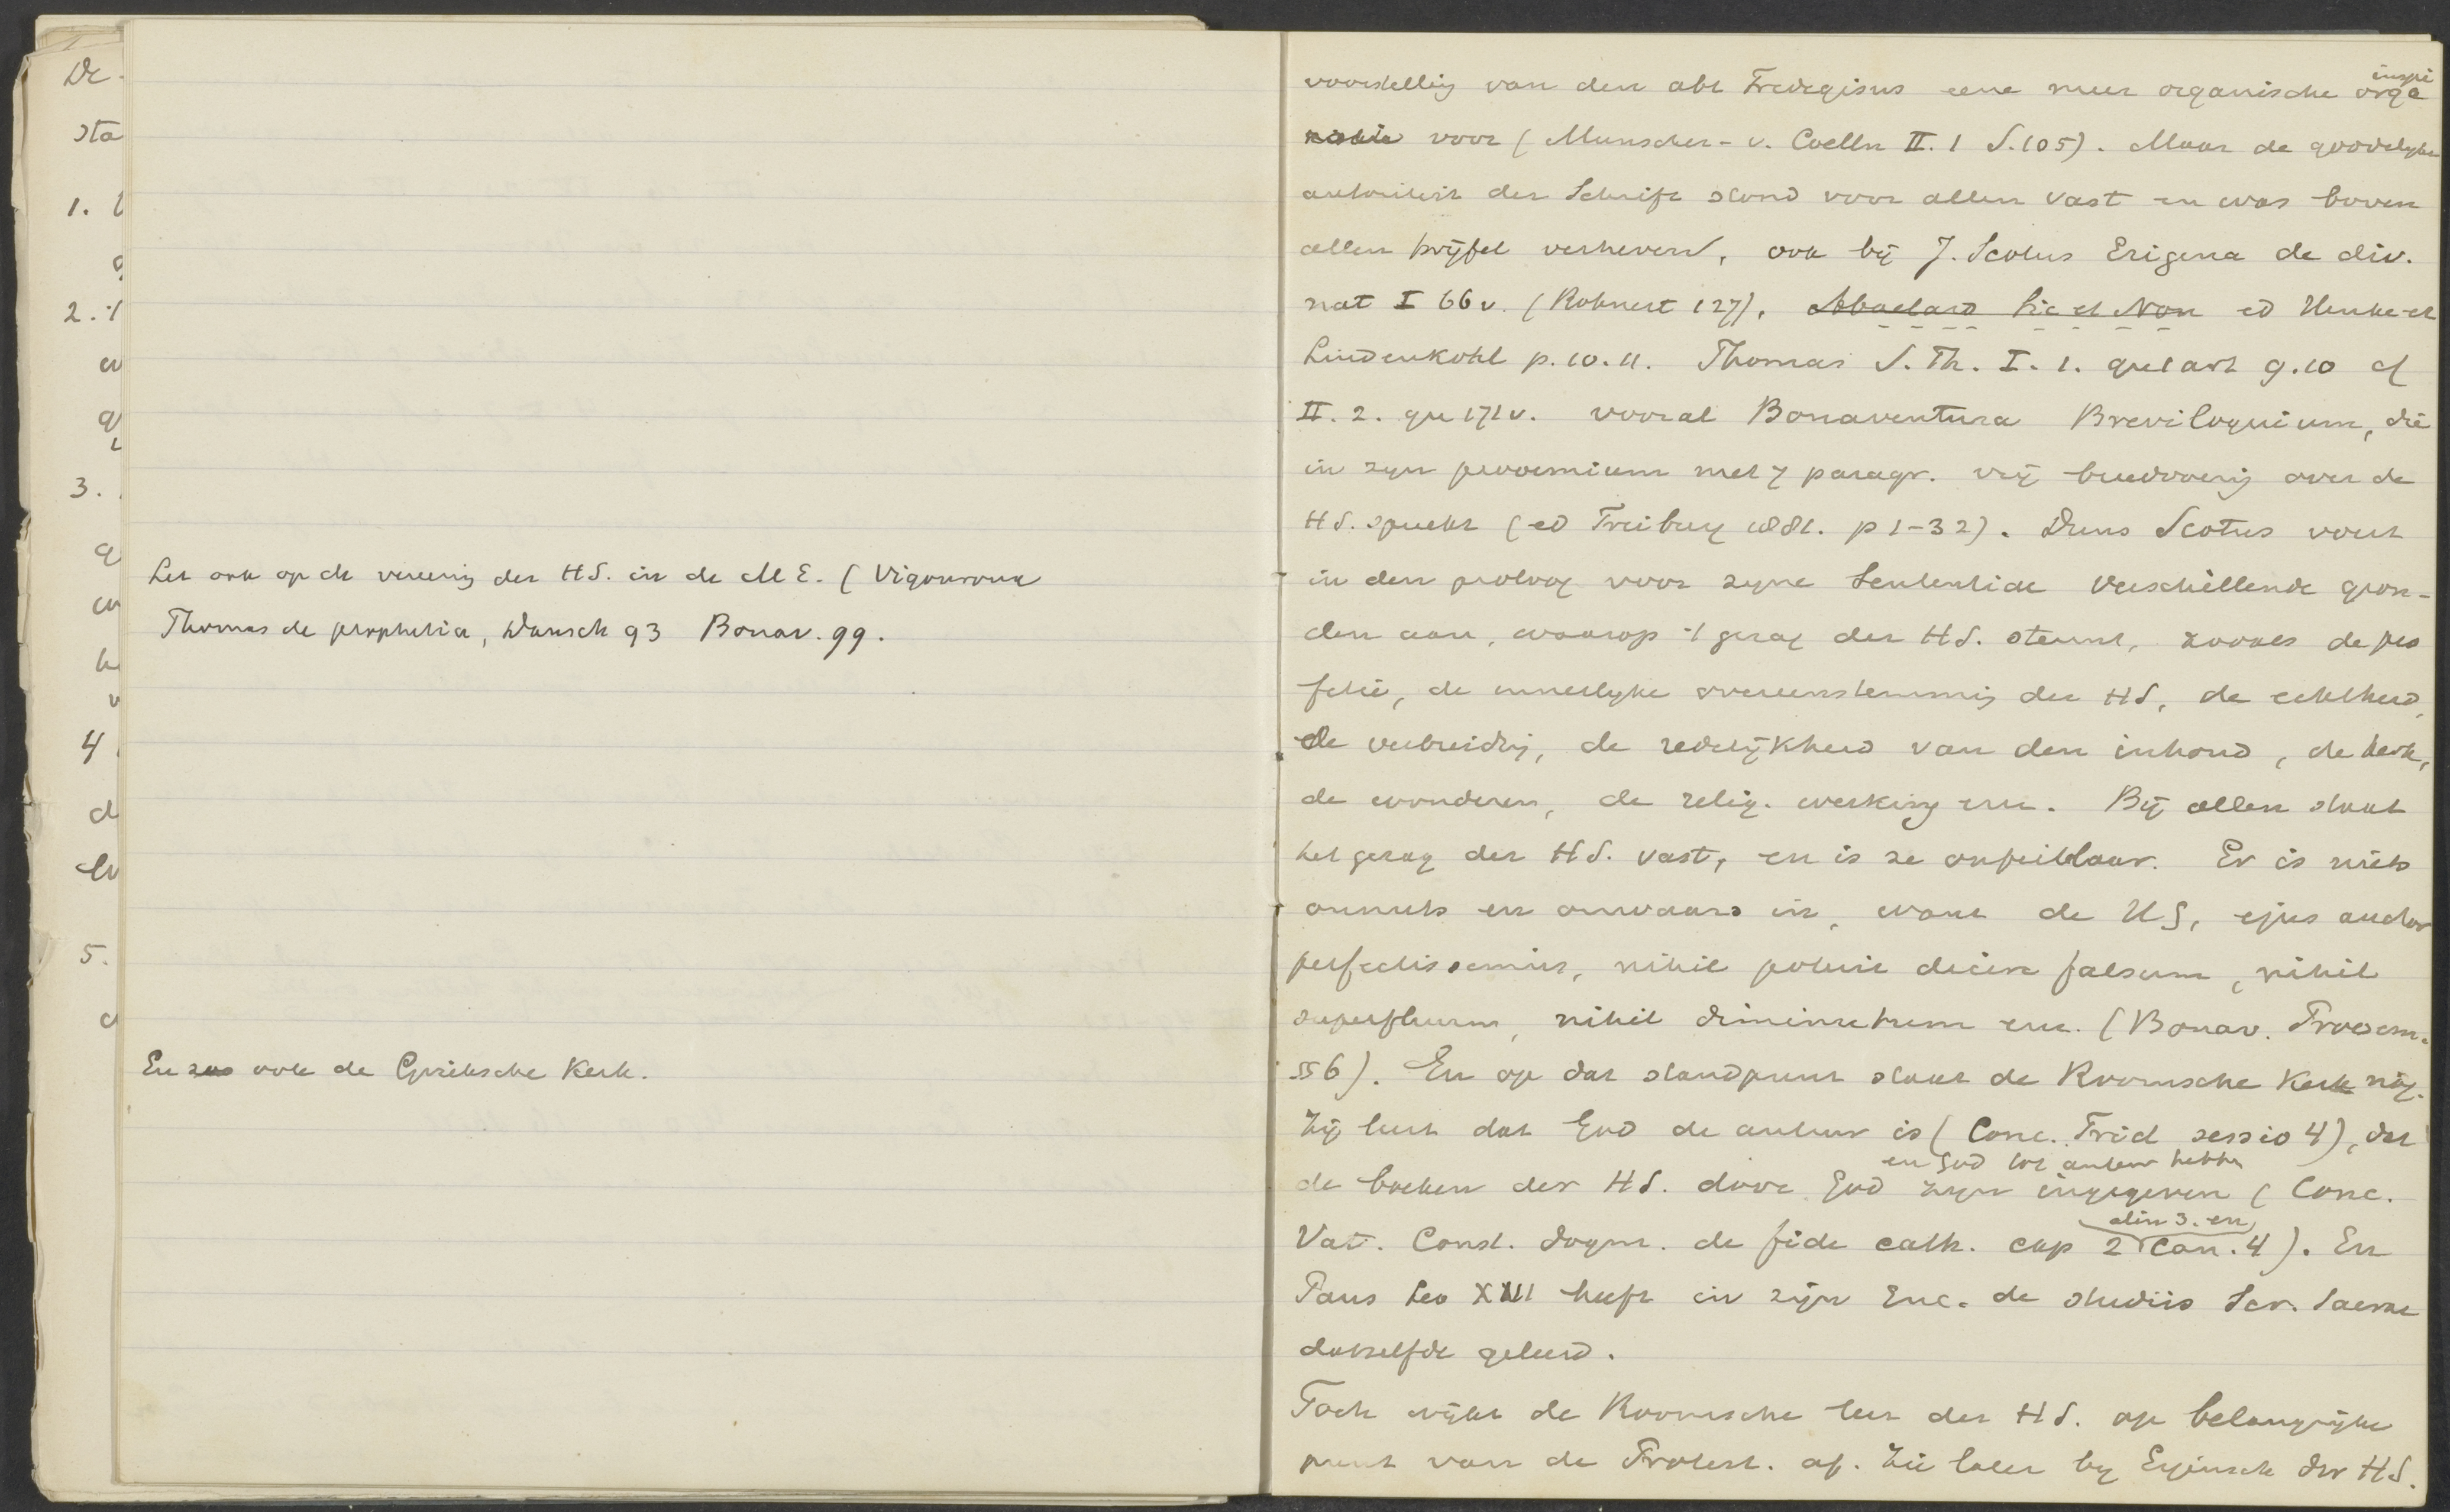 De
sta
1.
2. 't
3.
4
5.
Let ook op de vereering der HS. in de M E. (Vigouroux
Thomas de prophetia, Dausch 93 Bonav. 99.
En zoo ook de Grieksche Kerk.
voorstelling van den abt Fredegisus eene meer organische orga
inspi
ratie voor (Munscher - v. Coelln II. 1 S. 105). Maar de goddelyke
autoriteit der Schrift stond voor allen vast en was boven
allen twijfel verheven, ook bij J. Scotus Erigena de div.
nat I 66 v. (Rohnert 127), Abaelard Sic et Non ed Henke et
Lindenkohl p. 10. 11. Thomas S. Th. I. 1. qu 1 art 9. 10 cf
II. 2. qu 171 v. vooral Bonaventura Breviloquium, die
in zyn prooemium met 7 paragr. vrij breedvoerig over de
HS. spreekt (ed Freiburg 1881. p 1-32). Duns Scotus voert
in den proloog voor zyne Sententiae verschillende gron-
den aan, waarop 't gezag der HS. steunt, zooals de pro
fetie, de innerlyke overeenstemming der HS, de echtheid,
de verbreiding, de redelijkheid van den inhoud, de kerk,
de wonderen, de relig. werking enz. Bij allen staat
het gezag der HS. vast, en is ze onfeilbaar. Er is niets
onnuts en onwaars in, want de HG, ejus auctor
perfectissimus, nihil potuit dicere falsum, nihil
superfluum, nihil diminutum enz. (Bonav. Prooem.
§ 6). En op dat standpunt staat de Roomsche Kerk nog.
Zij leert dat God de auteur is (Conc. Trid sessio 4), dat
en God tot auteur hebben
de boeken der HS. door God zyn ingegeven (Conc.
alin 3. en
Vat. Const. dogm. de fide cath. cap 2 can. 4). En
Paus Leo XIII heeft in zijn Enc. de studiis Scr. Sacrae
datzelfde geleerd.
Toch wijkt de Roomsche leer der HS. op belangrijke
punt van de Protest. af. Zie later by Eigensch der HS.